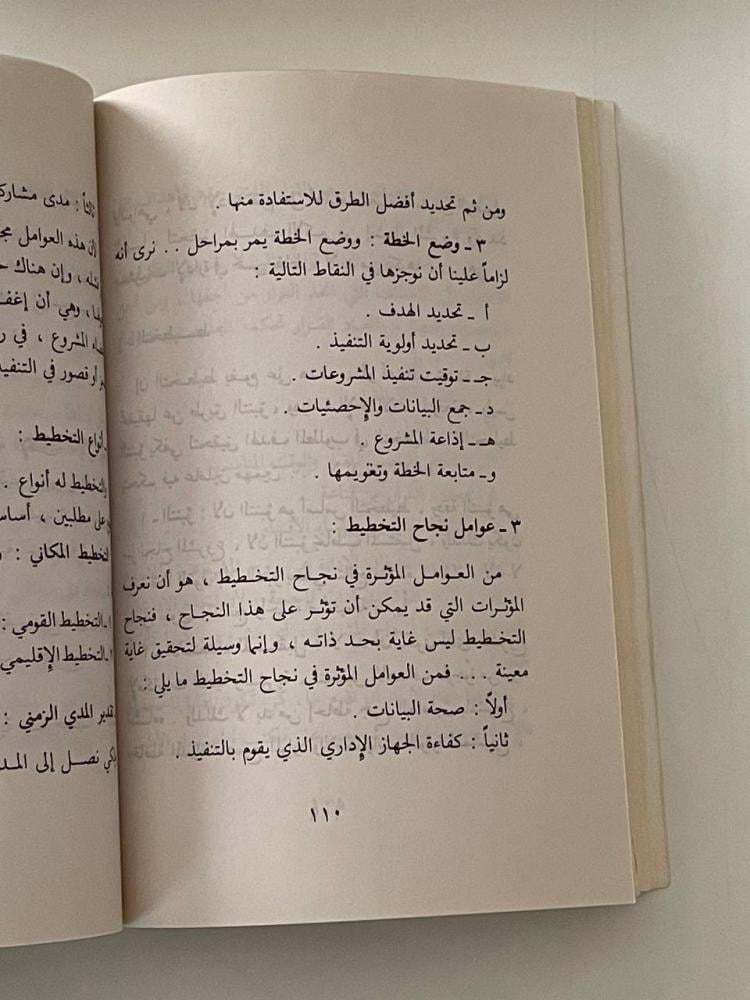 ومن ثم تحديد أفضل الطرق للاستفادة منها .
٣ ـ وضع الخطة : ووضع الخطة يمر بمراحل . . نرى أنه
لزاماً علينا أن نوجزها في النقاط التالية :
أ ـ تحديد الهدف .
ب ـ تحديد أولوية التنفيذ .
جـ ـ توقيت تنفيذ المشروعات .
د ـ جمع البيانات والإحصئيات .
هـ ـ إذاعة المشروع .
و ـ متابعة الخطة وتغويمها .
٣ ـ عوامل نجاح التخطيط :
من العوامل المؤثرة في نجاح التخطيط ، هو أن نعرف
المؤثرات التي قد يمكن أن تؤثر على هذا النجاح ، فنجاح
التخطيط ليس غاية بحد ذاته ، وإنما وسيلة لتحقيق غاية
معينة . . . فمن العوامل المؤثرة في نجاح التخطيط ما يلي :
أولاً : صحة البيانات .
ثانياً : كفاءة الجهاز الإداري الذي يقوم بالتنفيذ .
١١٠
ثالثاً : مدى
هذه العوامل
، وإن هناك
، وهي أن
المشروع ، في
أو قصور في
أنواع التخطيط :
التخطيط له أنواع .
على مطلبين ،
التخطيط المكاني :
التخطيط القومي :
التخطيط الإقليمي
المدي الزمني :
نصل إلى